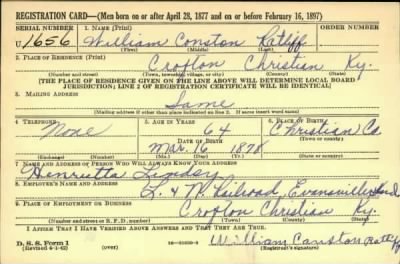 REGISTRATION CARD—(Men born on or after April 28, 1877 and on or before February 16, 1897)
SERIAL NUMBER 1. NAME (Print) ORDER NUMBER
U 1656 William Conston Ratliff
(First) (Middle) (Last)
2. PLACE OF RESIDENCE (Print)
Crofton Christian Ky.
(Number and street) (Town, township, village, or city) (County) (State)
[THE PLACE OF RESIDENCE GIVEN ON THE LINE ABOVE WILL DETERMINE LOCAL BOARD
JURISDICTION; LINE 2 OF REGISTRATION CERTIFICATE WILL BE IDENTICAL]
3. MAILING ADDRESS
Same
(Mailing address if other than place indicated on line 2. If same insert word same)
4. TELEPHONE 5. AGE IN YEARS 6. PLACE OF BIRTH
None 64 Christian Co
DATE OF BIRTH (Town or county)
Mar. 16 1878
(Exchange) (Number) (Mo.) (Day) (Yr.) (State or country)
7. NAME AND ADDRESS OF PERSON WHO WILL ALWAYS KNOW YOUR ADDRESS
Henrietta Lindsy
8. EMPLOYER'S NAME AND ADDRESS
L. & N. Railroad, Evansville Ind
9. PLACE OF EMPLOYMENT OR BUSINESS
Crofton Christian Ky.
(Number and street or R. F. D. number) (Town) (County) (State)
I AFFIRM THAT I HAVE VERIFIED ABOVE ANSWERS AND THAT THEY ARE TRUE.
D. S. S. Form 1
(Revised 4-1-42) (over) William Conston Ratliff
(Registrant's signature)